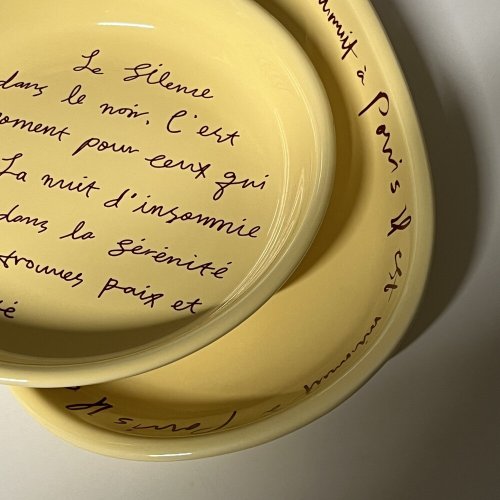 Le silence
dans le noir. C'est
oment pour ceux qui
La nuit d'insomnie
dans la sérénité
trouves paix et
té
à Paris
Paris